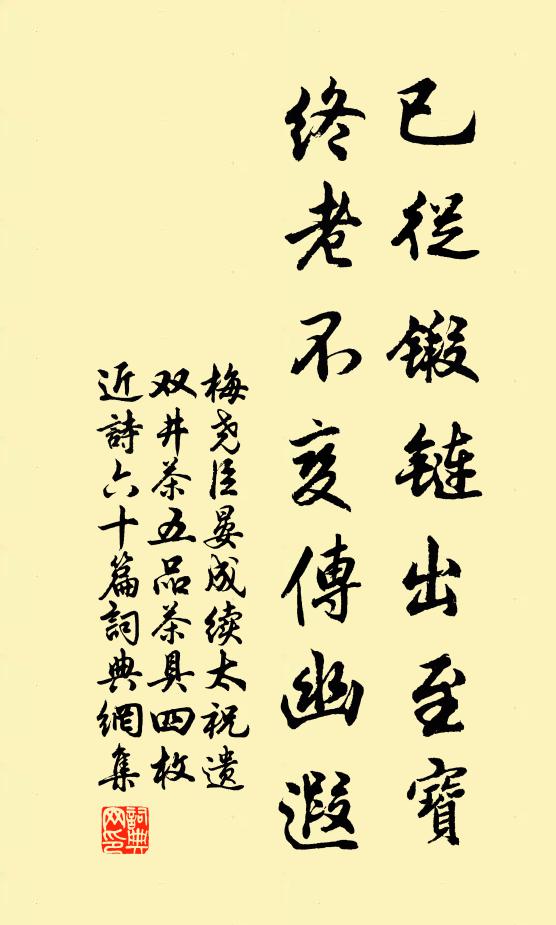 已從鍛鏈出至寶
終老不变傳幽遐
梅尧臣晏成续太祝遗
双井茶五品茶具四枚
近詩六十篇詞典網集
詞典网印